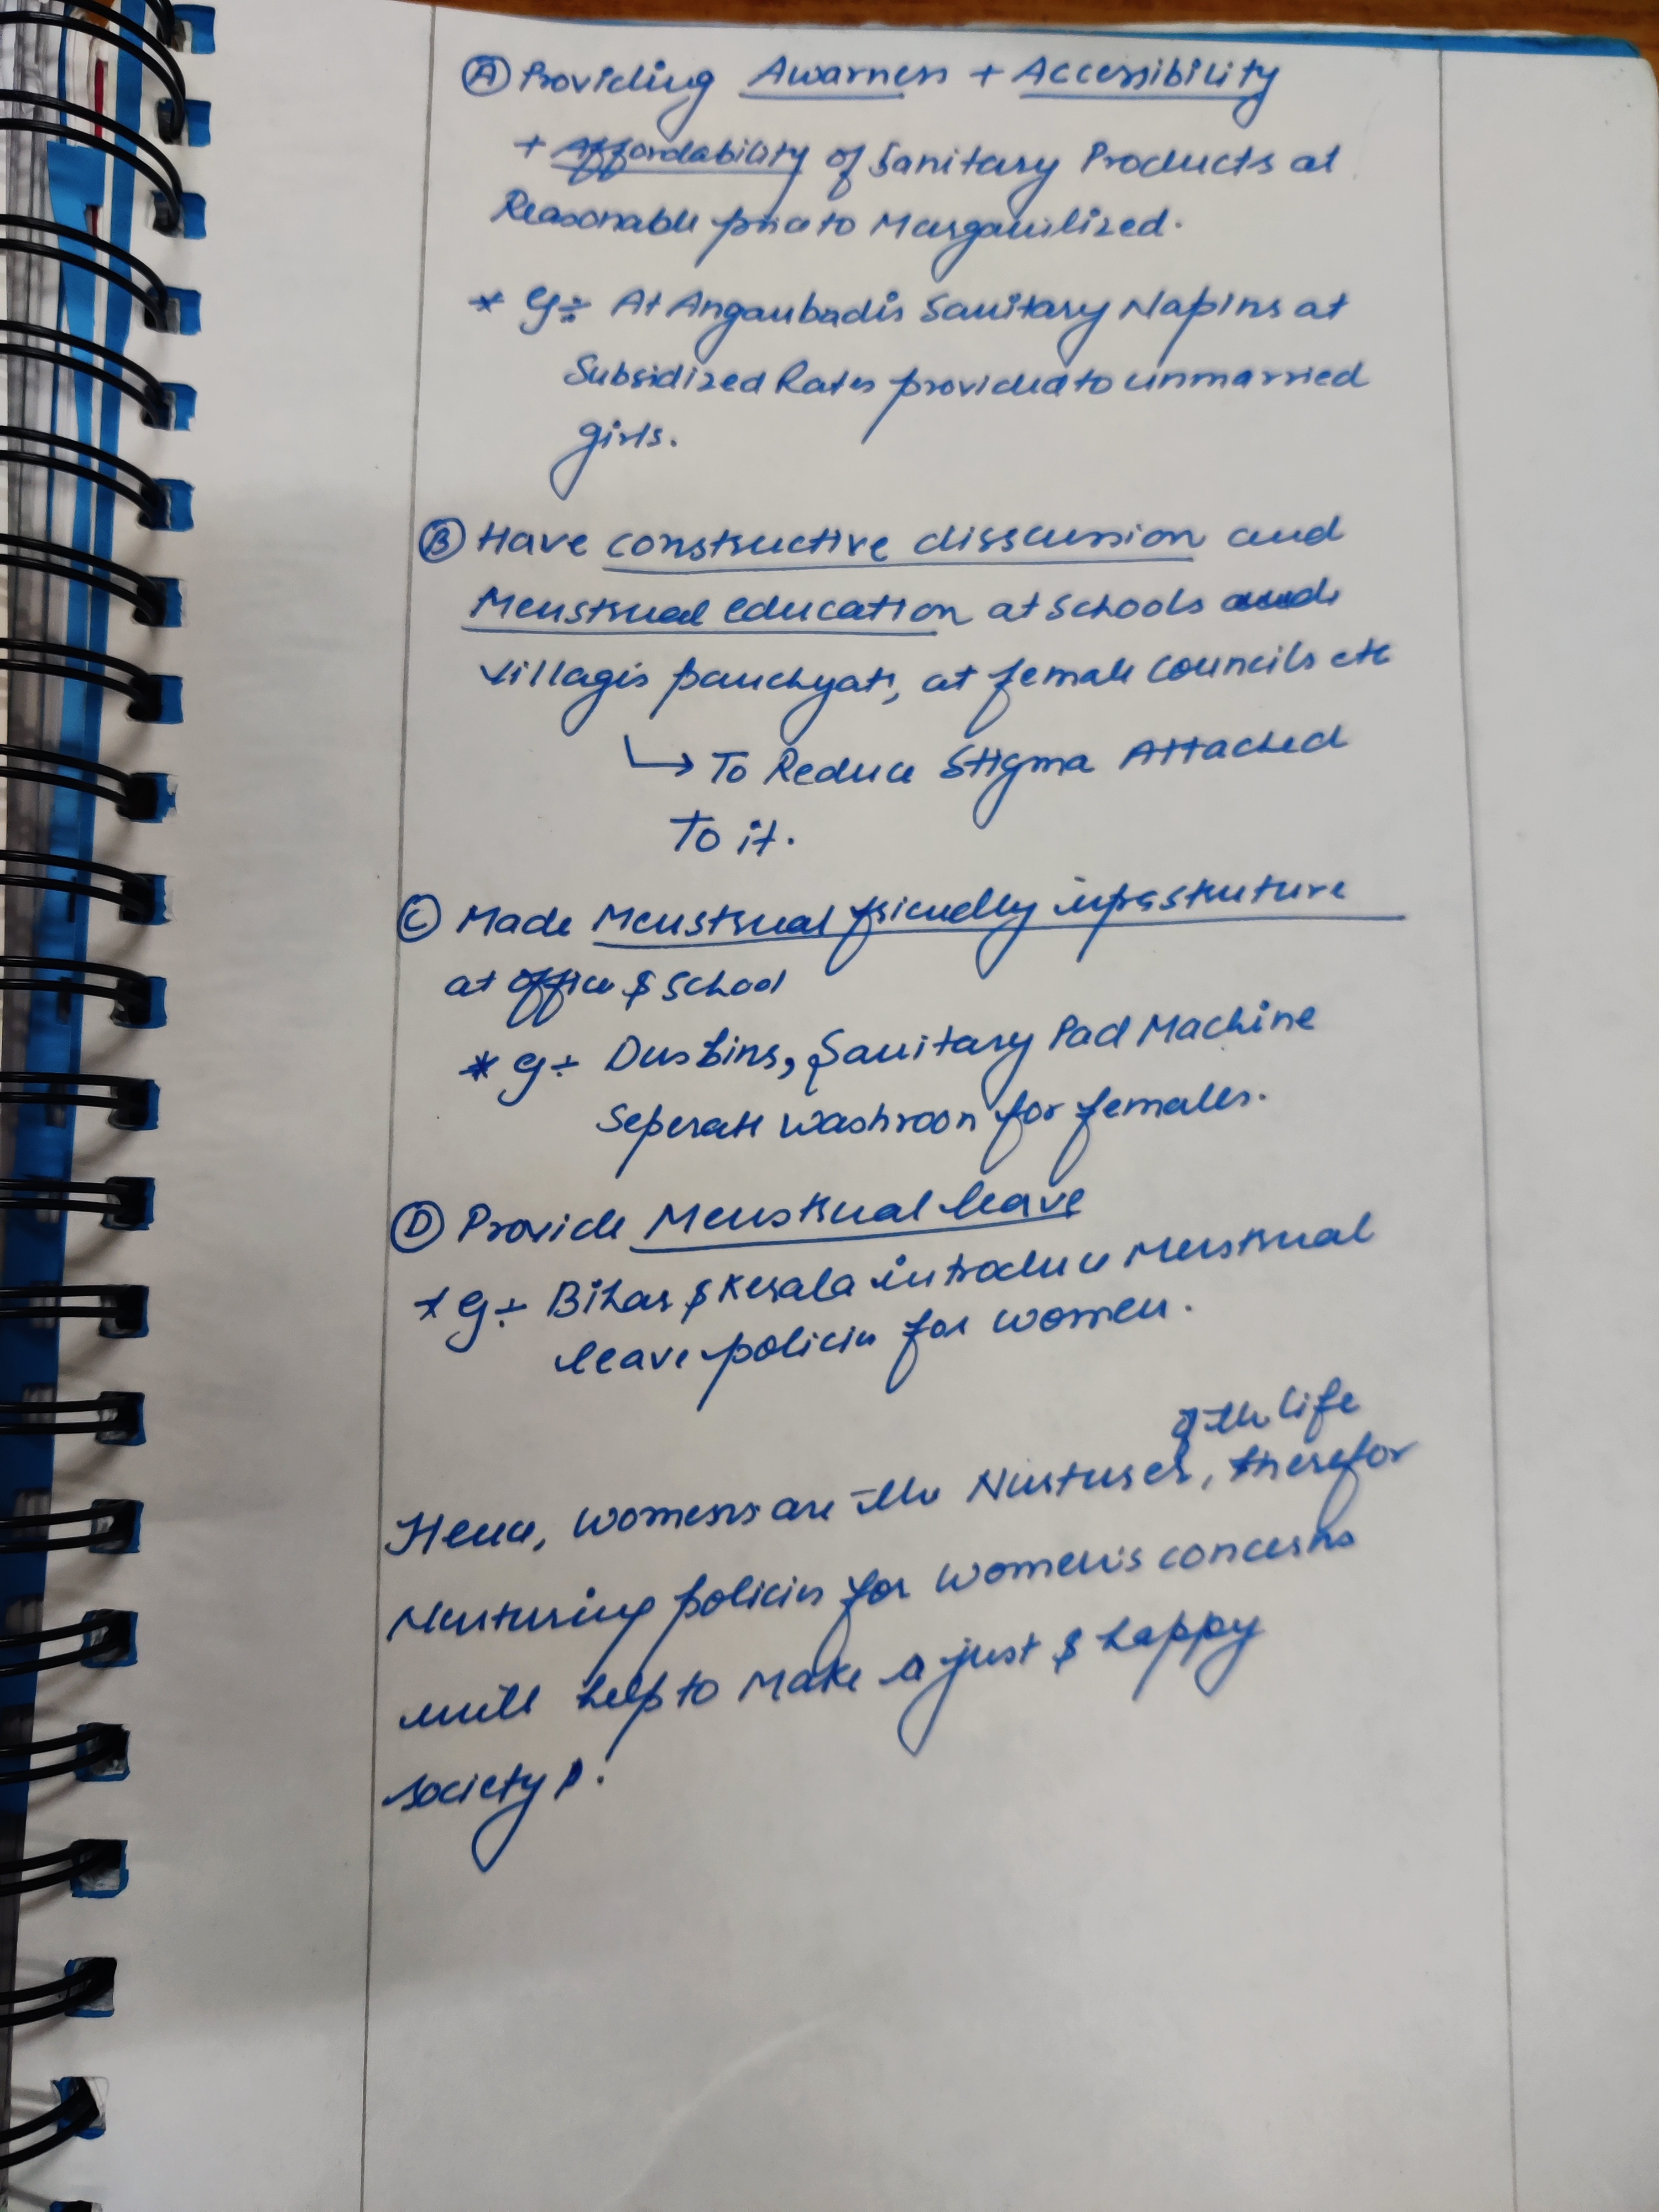 Ⓐ Providing Awarness + Accessibility
+ Affordability of Sanitary Products at
Reasonable price to Marganilized.
* eg÷ At Anganbadis Sanitary Napins at
Subsidized Rates provided to unmarried
girls.
Ⓑ Have constructive disscussion and
Menstrual education at schools
villages panchyats, at female councils etc
↳ To Reduce Stigma Attached
To it.
Ⓒ Made Menstrual friendly infrastruture
at office & school
* eg÷ Dusbins, Sanitary Pad Machine
Seperate washroon for females.
Ⓓ Provide Menstrual leave
* eg÷ Bihar & Kerala introduce Menstrual
leave policies for women.
of the life
Hence, womens are the Nurturer, therefor
Nurturing policies for women's concerns
will help to Make a just & happy
society.